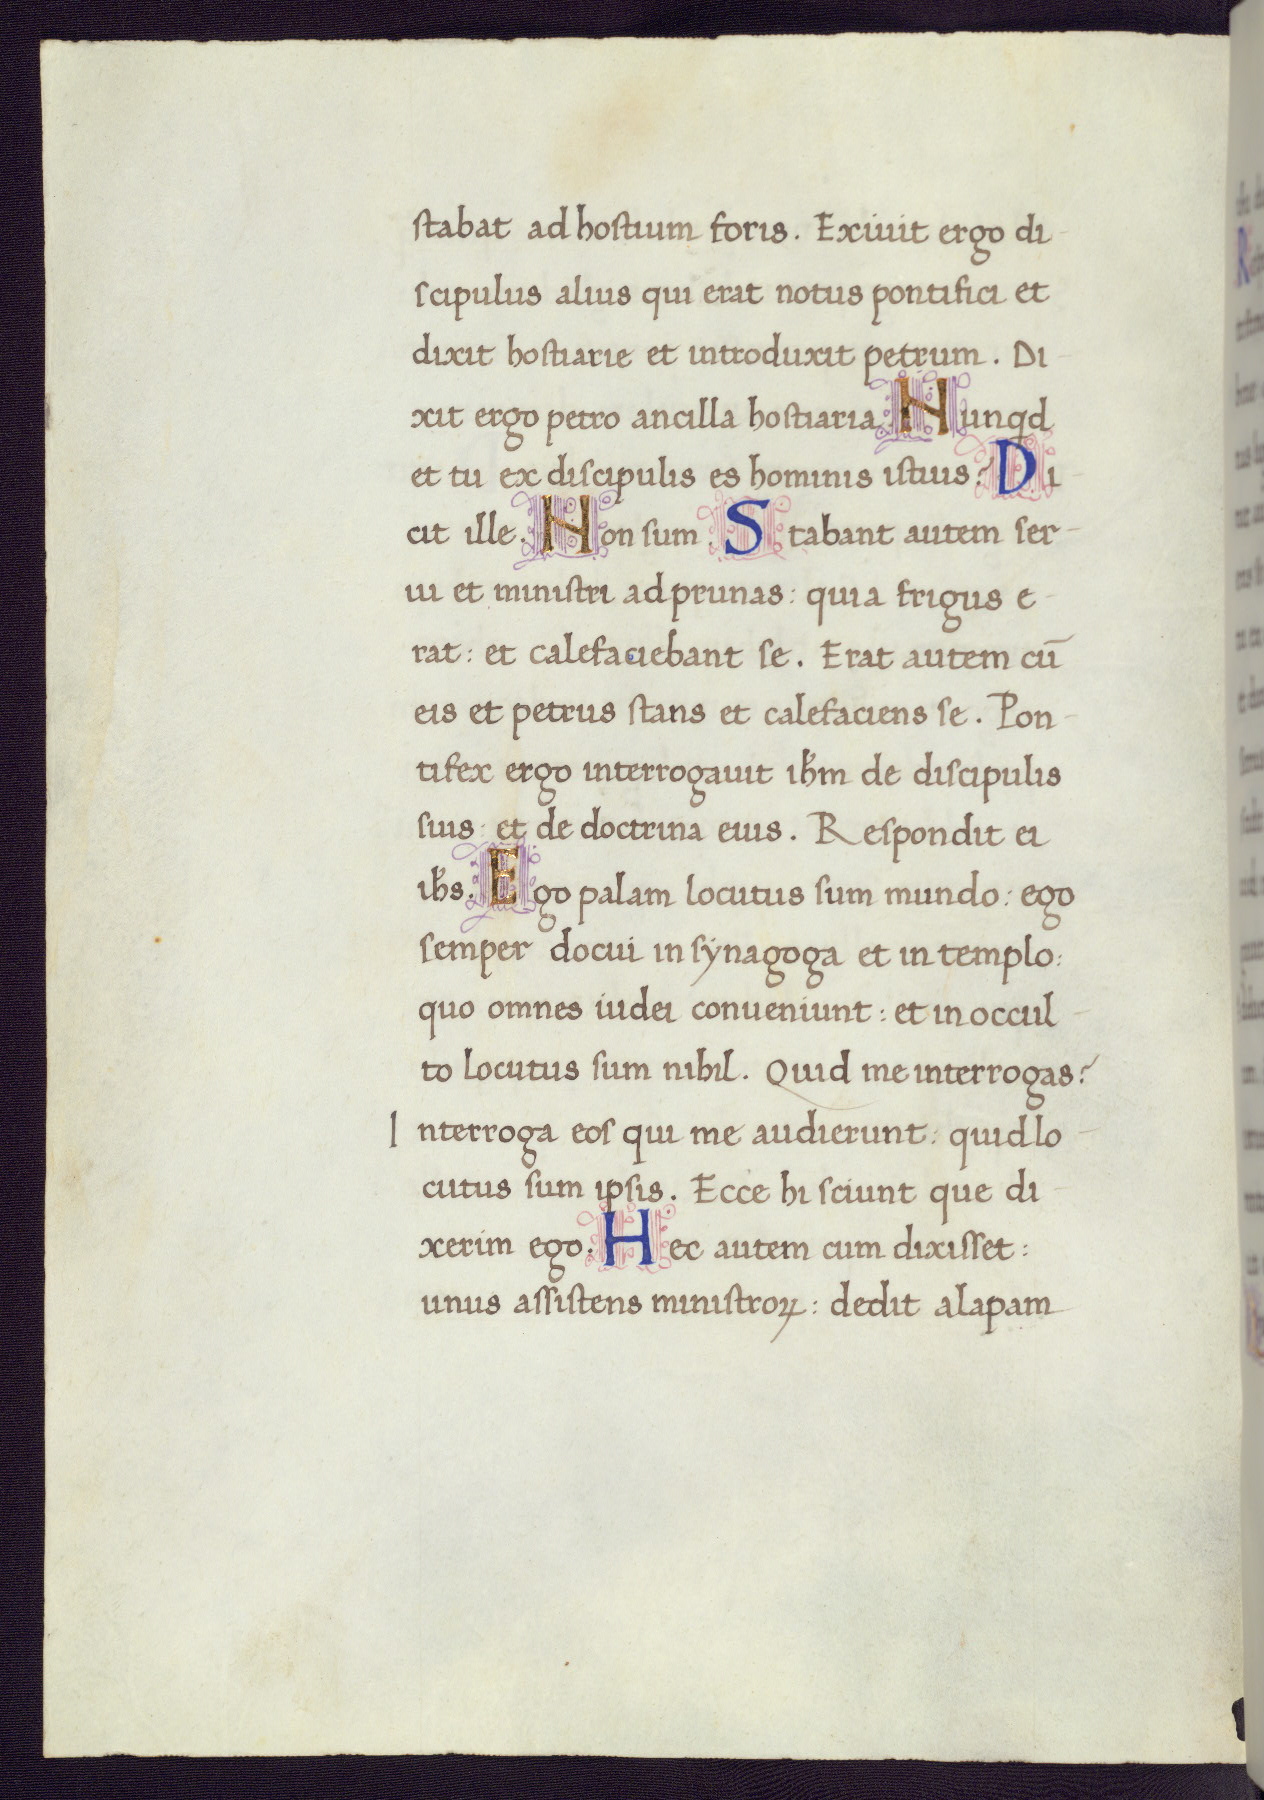 stabat ad hostium foris. Exiuit ergo di-
scipulus alius qui erat notus pontifici et
dixit hostiarie et introduxit petrum. Di-
xit ergo petro ancilla hostiaria. Nunqd
et tu ex discipulis es hominis istius? Di-
cit ille. Non sum. Stabant autem ser-
ui et ministri ad prunas: quia frigus e-
rat: et calefaciebant se. Erat autem cū
eis et petrus stans et calefaciens se. Pon-
tifex ergo interrogauit ihm de discipulis
suis: et de doctrina eius. Respondit ei
ihs. Ego palam locutus sum mundo: ego
semper docui in sÿnagoga et in templo:
quo omnes iudei conueniunt: et in occul-
to locutus sum nihil. Quid me interrogas?
Interroga eos qui me audierunt: quid lo-
cutus sum ipsis. Ecce hi sciunt que di-
xerim ego. Hec autem cum dixisset:
unus assistens ministroꝝ: dedit alapam